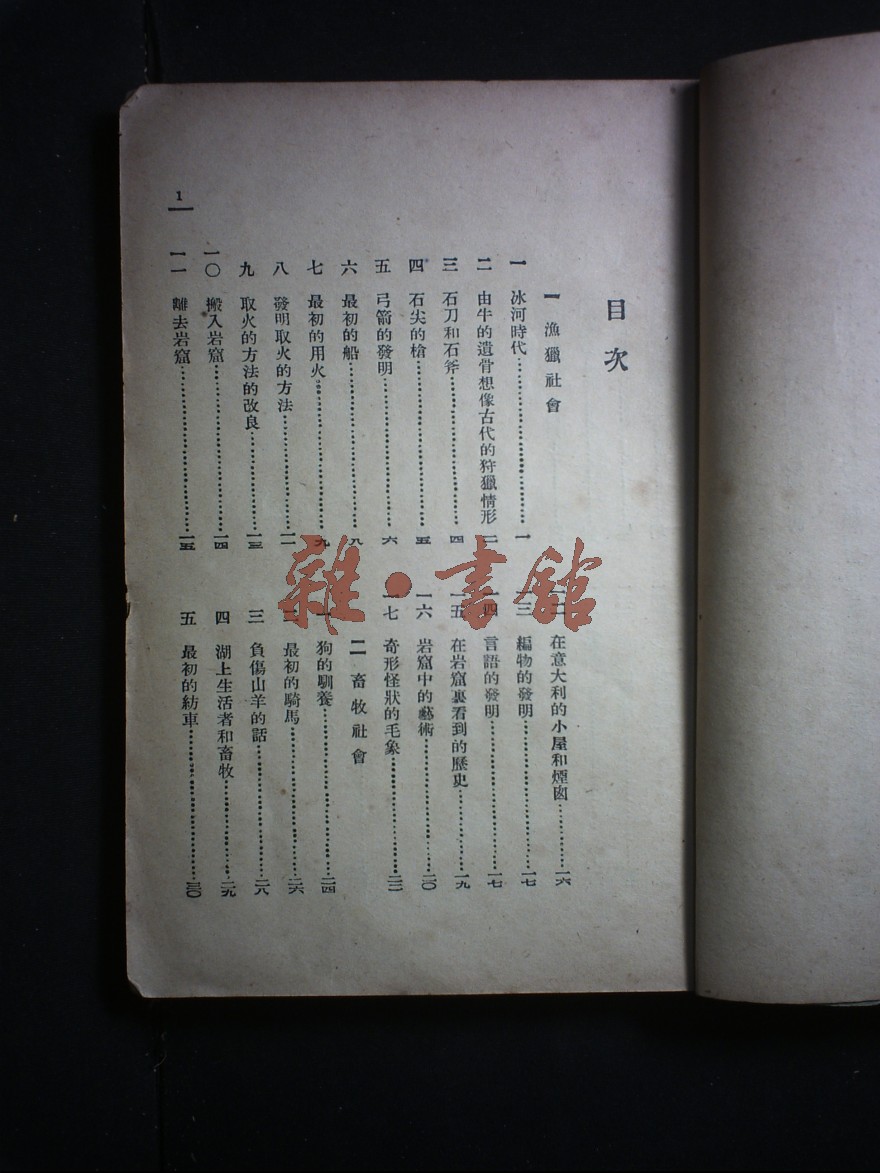 目次
一 漁獵社會
一 冰河時代…………一
二 由牛的遺骨想像古代的狩獵情形 二
三 石刀和石斧…………四
四 石尖的槍…………五
五 弓箭的發明…………六
六 最初的船…………八
七 最初的用火…………九
八 發明取火的方法…………一一
九 取火的方法的改良…………一三
一〇 搬入岩窟…………一四
一一 離去岩窟…………一五
一二 在意大利的小屋和煙囱…………一六
一三 編物的發明…………一七
一四 言語的發明…………一七
一五 在岩窟裏看到的歷史…………一九
一六 岩窟中的藝術…………二〇
一七 奇形怪狀的毛象…………二二
二 畜牧社會
一 狗的馴養…………二四
二 最初的騎馬…………二六
三 負傷山羊的話…………二八
四 湖上生活者和畜牧…………二九
五 最初的紡車…………三〇
1
雜·書館